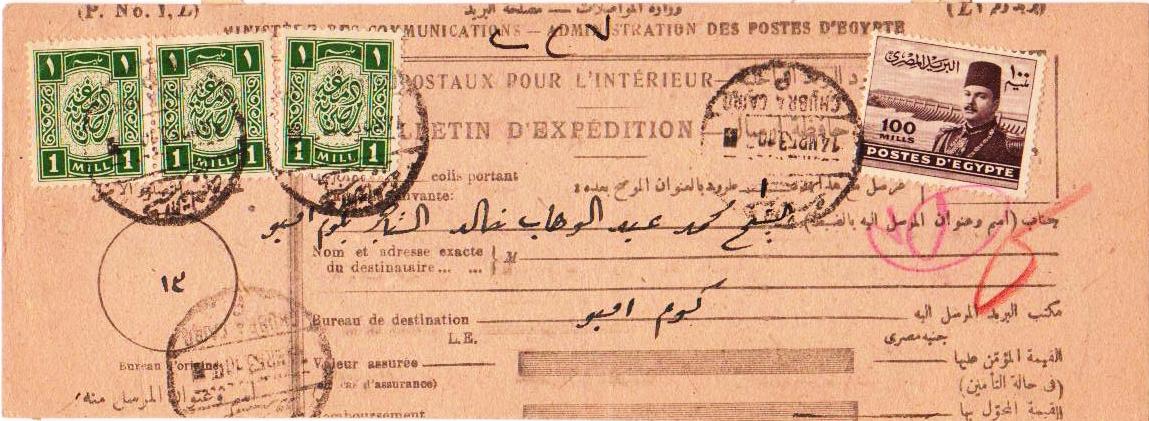 (P. No. 1, L)
وزارة المواصلات — مصلحة البريد
MINISTÈRE DES COMMUNICATIONS — ADMINISTRATION DES POSTES D'EGYPTE
١ مليم ١
1 MILL 1
١ مليم ١
1 MILL 1
١ مليم ١
1 MILL 1
١٠٠ مليم
البريد المصرى
100 MILLS
POSTES D'EGYPTE
POSTAUX POUR L'INTÉRIEUR
BULLETIN D'EXPÉDITION
CHUBRA CAIRO
colis portant
طرود بالعنوان الموضح بعده :
جناب (اسم وعنوان المرسل اليه بالضبط)
الشيخ محمد عبد الوهاب خالد التاجر بكوم امبو
Nom et adresse exacte
du destinataire ... ... M
١٣
Bureau de destination
كوم امبو
مكتب البريد المرسل اليه
L.E.
جنيه مصرى
Bureau d'origine
Valeur assurée
القيمة المؤمن عليها
(cas d'assurance)
(فى حالة التأمين)
اسم وعنوان المرسل منه
Remboursement
القيمة المحول بها